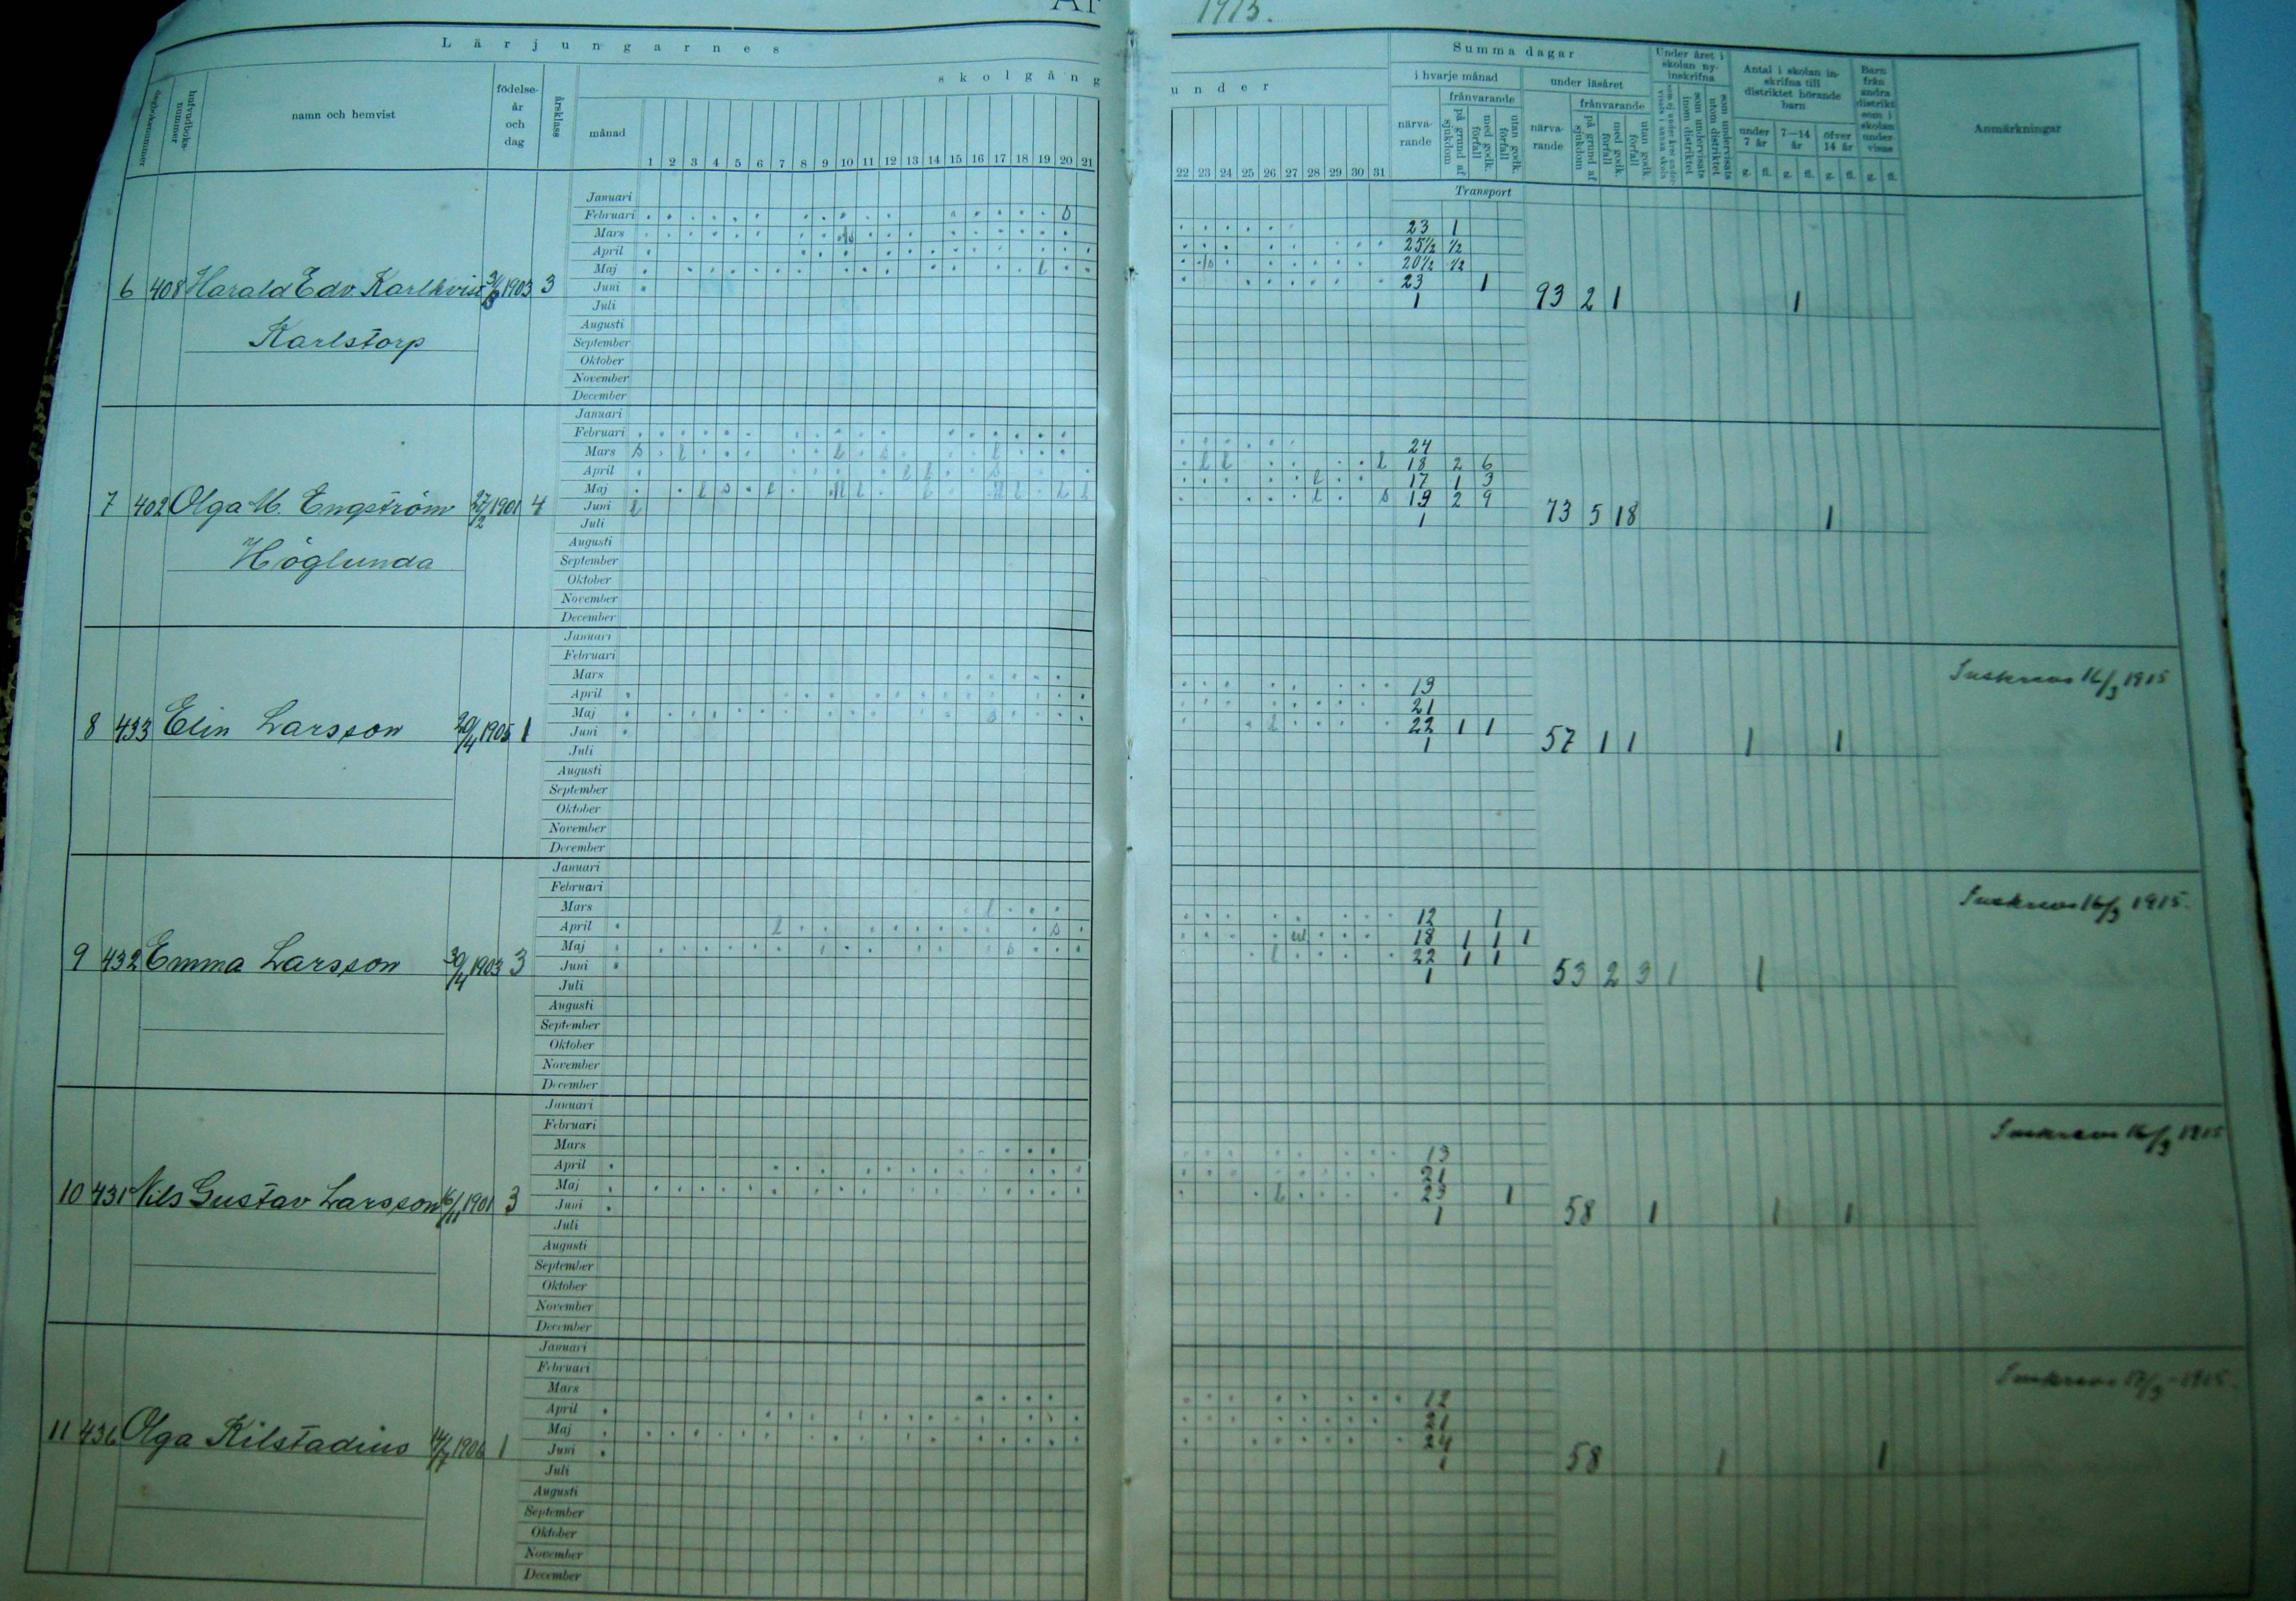 1915.
Lärjungarnes
skolgång
under
Summa dagar
i hvarje månad
under läsåret
Under året i skolan ny-inskrifna
Antal i skolan in-skrifna till distriktet hörande barn
Barn från andra distrikt som i skolan under-visas
Anmärkningar
dagboksnummer
hufvudboks-nummer
namn och hemvist
födelse-år och dag
årsklass
månad
1 2 3 4 5 6 7 8 9 10 11 12 13 14 15 16 17 18 19 20 21
22 23 24 25 26 27 28 29 30 31
närva-rande
frånvarande
på grund af sjukdom
med godk. förfall
utan godk. förfall
närva-rande
frånvarande
på grund af sjukdom
med godk. förfall
utan godk. förfall
som undervisats inom distriktet
som undervisats utom distriktet
under 7 år
7—14 år
öfver 14 år
g. fl. g. fl. g. fl. g. fl.
Transport
6 408 Harald Edv. Karlkvist 1903 3
Karlstorp
Januari
Februari 23 1
Mars 25½ ½
April 20½ ½
Maj 23 1
Juni 1
93 2 1 1
Juli
Augusti
September
Oktober
November
December
7 402 Olga M. Engström 27/2 1901 4
Höglunda
Januari
Februari 24
Mars 18 2 6
April 17 1 3
Maj 13 2 9
Juni 1
73 5 18 1
Juli
Augusti
September
Oktober
November
December
8 433 Elin Larsson 20/4 1905 1
Inskrevs 16/3 1915
Januari
Februari
Mars 13
April 21
Maj 22 1 1
Juni 1
57 1 1 1 1
Juli
Augusti
September
Oktober
November
December
9 432 Emma Larsson 30/4 1903 3
Inskrevs 16/3 1915.
Januari
Februari
Mars 12 1
April 18 1 1 1
Maj 22 1 1
Juni 1
53 2 3 1 1
Juli
Augusti
September
Oktober
November
December
10 431 Nils Gustav Larsson 16/11 1901 3
Inskrevs 16/3 1915
Januari
Februari
Mars 13
April 21
Maj 23 1
Juni 1
58 1 1 1
Juli
Augusti
September
Oktober
November
December
11 436 Olga Kilstadius 1906 1
Inskrevs 17/3 1915.
Januari
Februari
Mars 12
April 21
Maj 24
Juni 1
58 1 1
Juli
Augusti
September
Oktober
November
December